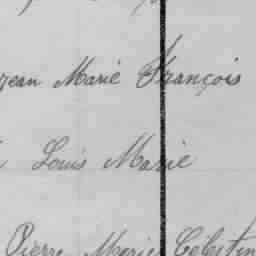 Jean Marie François
Louis Marie
Pierre Marie Célestin